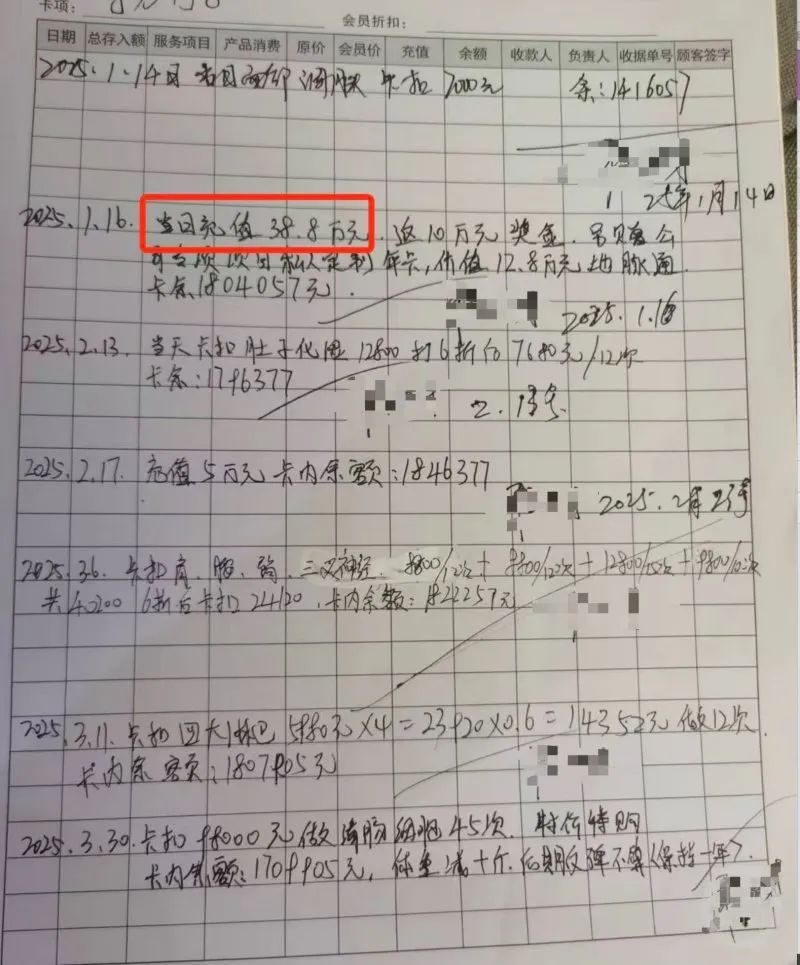 卡项:
会员折扣:
日期 总存入额 服务项目 产品消费 原价 会员价 充值 余额 收款人 负责人 收据单号 顾客签字
2025.1.14日 当日面部 调肤 卡扣 7000元 余:1416057
2025年1月14日
2025.1.16. 当日充值 38.8万元. 返10万元 奖金.
可专项项目私人定制年卡,价值12.8万元
卡余1804057元.
2025.1.16
2025.2.13. 当天卡扣肚子化湿 12800 打6折后 7680元/12次
卡余:1796377
2.13号
2025.2.17. 充值5万元 卡内余额:1846377
2025.2月
2025.3.6. 卡扣肩、腰、 三叉神经. 9800/12次+9800/12次+12800/15次+9800/10次
共40200 6折后卡扣24120.卡内余额:1822257元
2025.3.11. 卡扣四大淋巴 5980元×4=23920×0.6=14352元 做12次.
卡内余额:1807905元
2025.3.30.卡扣98000元做 45次. 特价特购
卡内余额:1709905元, 体重减十斤.后期反弹不算(保持一年).